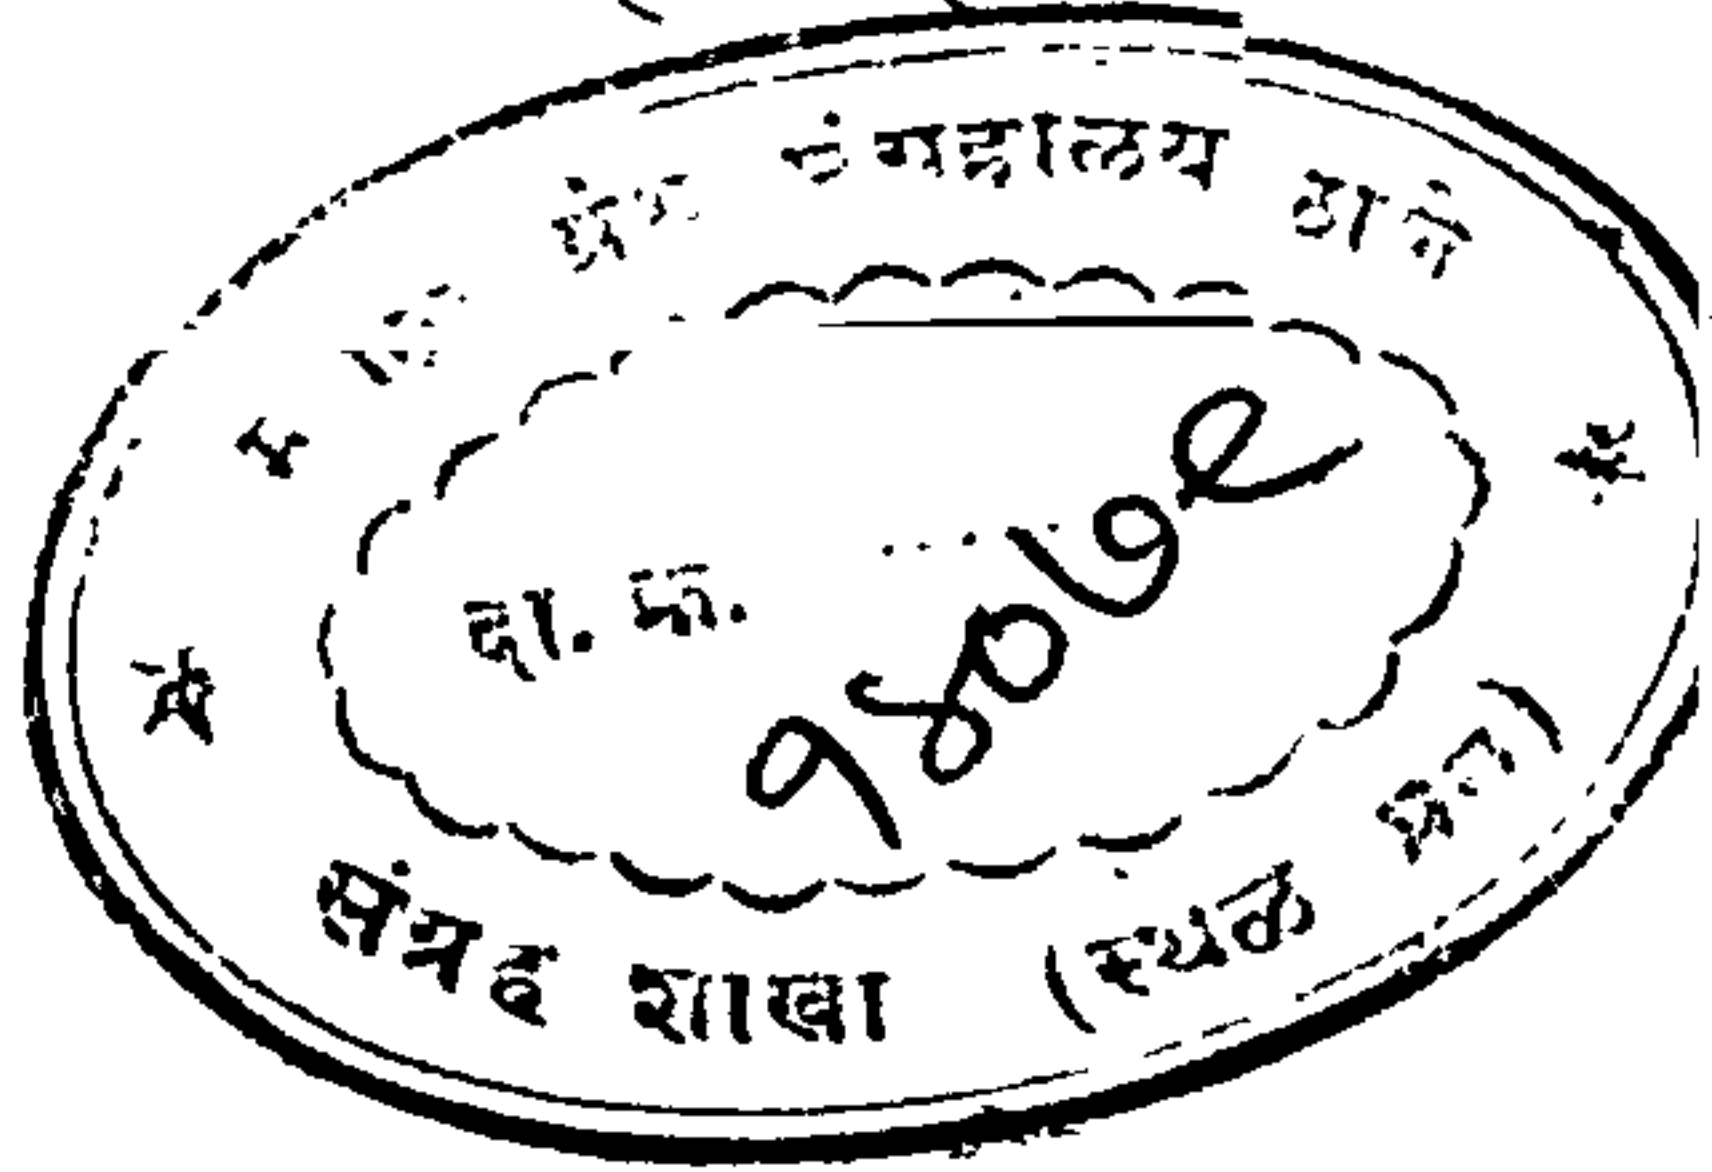 ग्रंथ संग्रहालय ठाणे
दा. क्र. १४०७९
संग्रह शाखा (स्थळ प्रत)